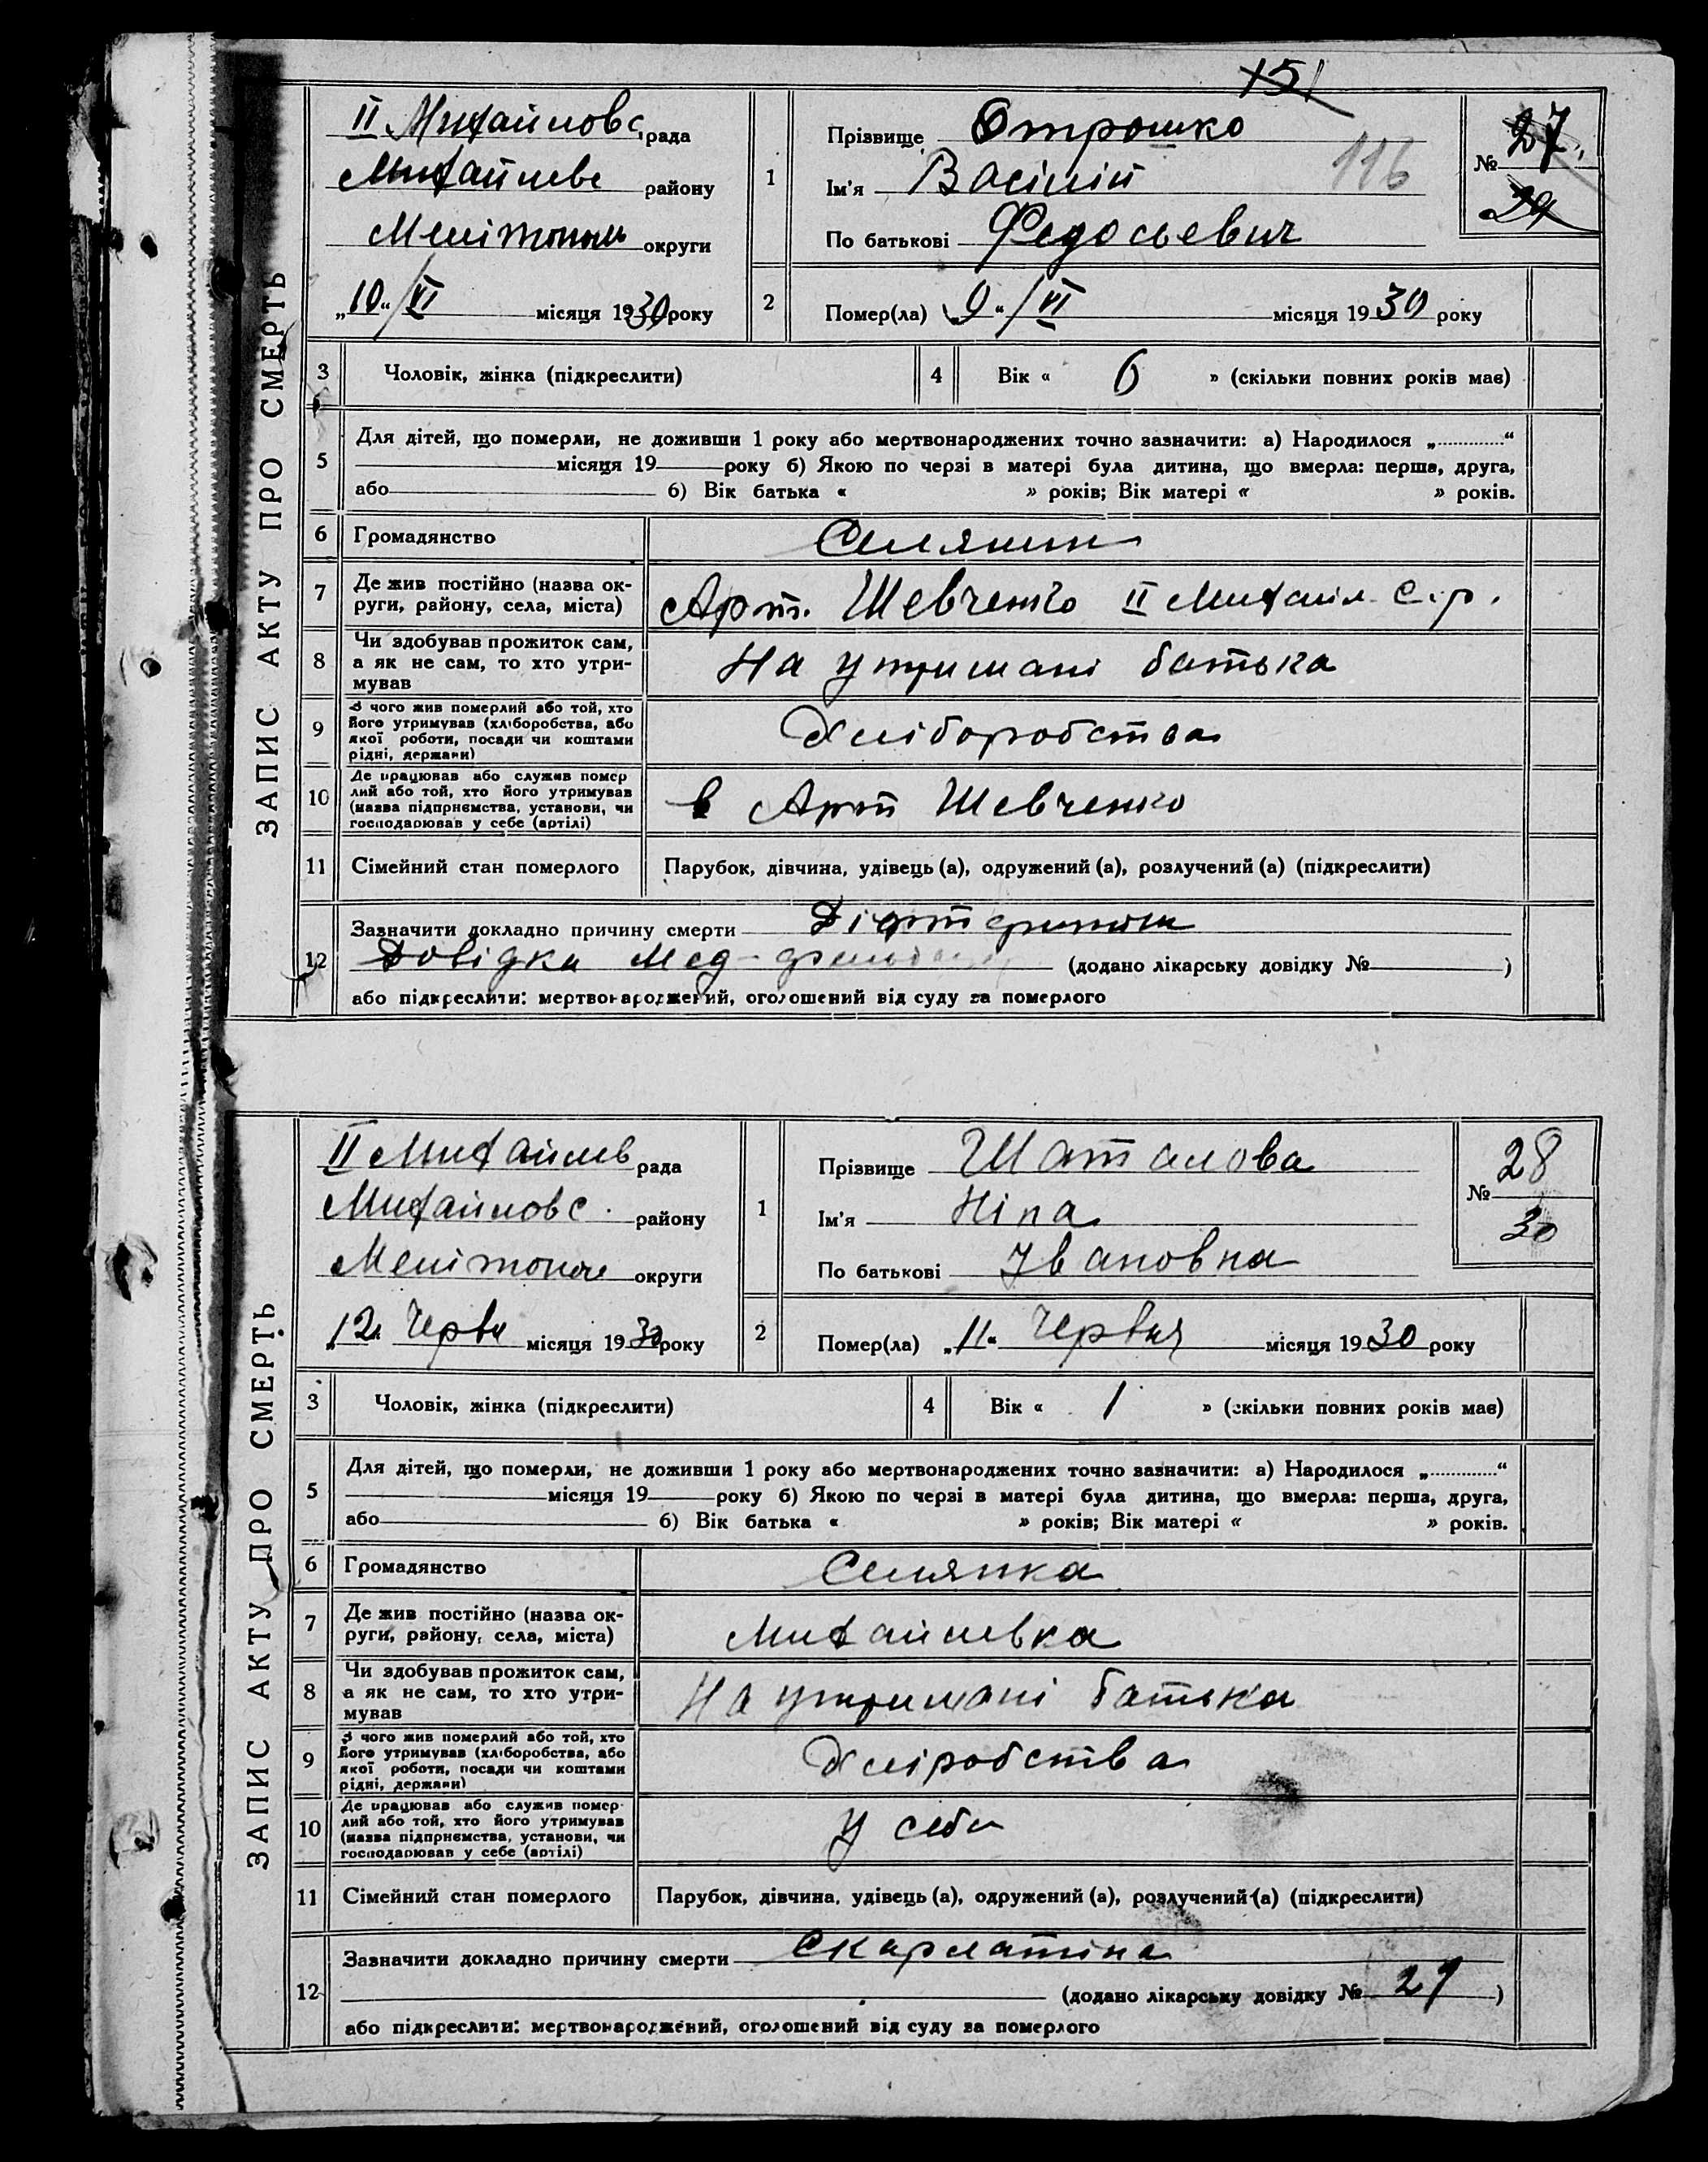 151
ЗАПИС АКТУ ПРО СМЕРТЬ
II Михайловс. рада
Михайлівс району
Мелітополь округи
„10“/VI місяця 1930 року
1
Прізвище Отрошко
116
Ім'я Васілій
По батькові Федосьевич
№ 27
29
2
Помер(ла) „9“/VI місяця 1930 року
3 Чоловік, жінка (підкреслити)
4 Вік « 6 » (скільки повних років має)
5
Для дітей, що померли, не доживши 1 року або мертвонароджених точно зазначити: а) Народилося „............“
місяця 19 року б) Якою по черзі в матері була дитина, що вмерла: перша, друга,
або б) Вік батька « » років; Вік матері « » років.
6 Громадянство Селянин
7 Де жив постійно (назва ок-
руги, району, села, міста) Арт. Шевченко II Михайл. С.р.
8 Чи здобував прожиток сам,
а як не сам, то хто утри-
мував На утримані батька
9 З чого жив померлий або той, хто
його утримував (хліборобства, або
якої роботи, посади чи коштами
рідні, держави) Хліборобства
10 Де працював або служив помер
лий або той, хто його утримував
(назва підприємства, установи, чи
господарював у себе (артілі) в Арт Шевченко
11 Сімейний стан померлого Парубок, дівчина, удівець (а), одружений (а), розлучений (а) (підкреслити)
12
Зазначити докладно причину смерти
Довідка Мед- (додано лікарську довідку № )
або підкреслити: мертвонароджений, оголошений від суду за померлого
ЗАПИС АКТУ ПРО СМЕРТЬ
II Михайлив рада
Михайловс. району
Мелітополь округи
„12“ Червн місяця 1930 року
1
Прізвище Шаталова
Ім'я Ніна
По батькові Івановна
№ 28
30
2
Помер(ла) „11“ Червня місяця 1930 року
3 Чоловік, жінка (підкреслити)
4 Вік « 1 » (скільки повних років має)
5
Для дітей, що померли, не доживши 1 року або мертвонароджених точно зазначити: а) Народилося „............“
місяця 19 року б) Якою по черзі в матері була дитина, що вмерла: перша, друга,
або б) Вік батька « » років; Вік матері « » років.
6 Громадянство Селянка
7 Де жив постійно (назва ок-
руги, району, села, міста) Михайлівка
8 Чи здобував прожиток сам,
а як не сам, то хто утри-
мував На утримані батька
9 З чого жив померлий або той, хто
його утримував (хліборобства, або
якої роботи, посади чи коштами
рідні, держави) Хліробства
10 Де працював або служив помер-
лий або той, хто його утримував
(назва підприємства, установи, чи
господарював у себе (артілі) У себе
11 Сімейний стан померлого Парубок, дівчина, удівець (а), одружений (а), розлучений (а) (підкреслити)
12
Зазначити докладно причину смерти Скарлатіна
(додано лікарську довідку № 27 )
або підкреслити: мертвонароджений, оголошений від суду за померлого